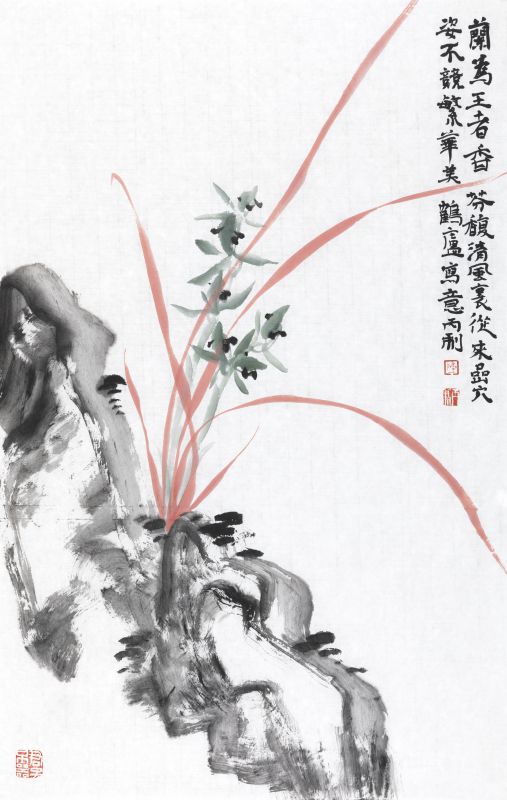 蘭為王者香 芬馥清風裏從來嵒穴
姿不競繁華美 鶴廬寫意丙